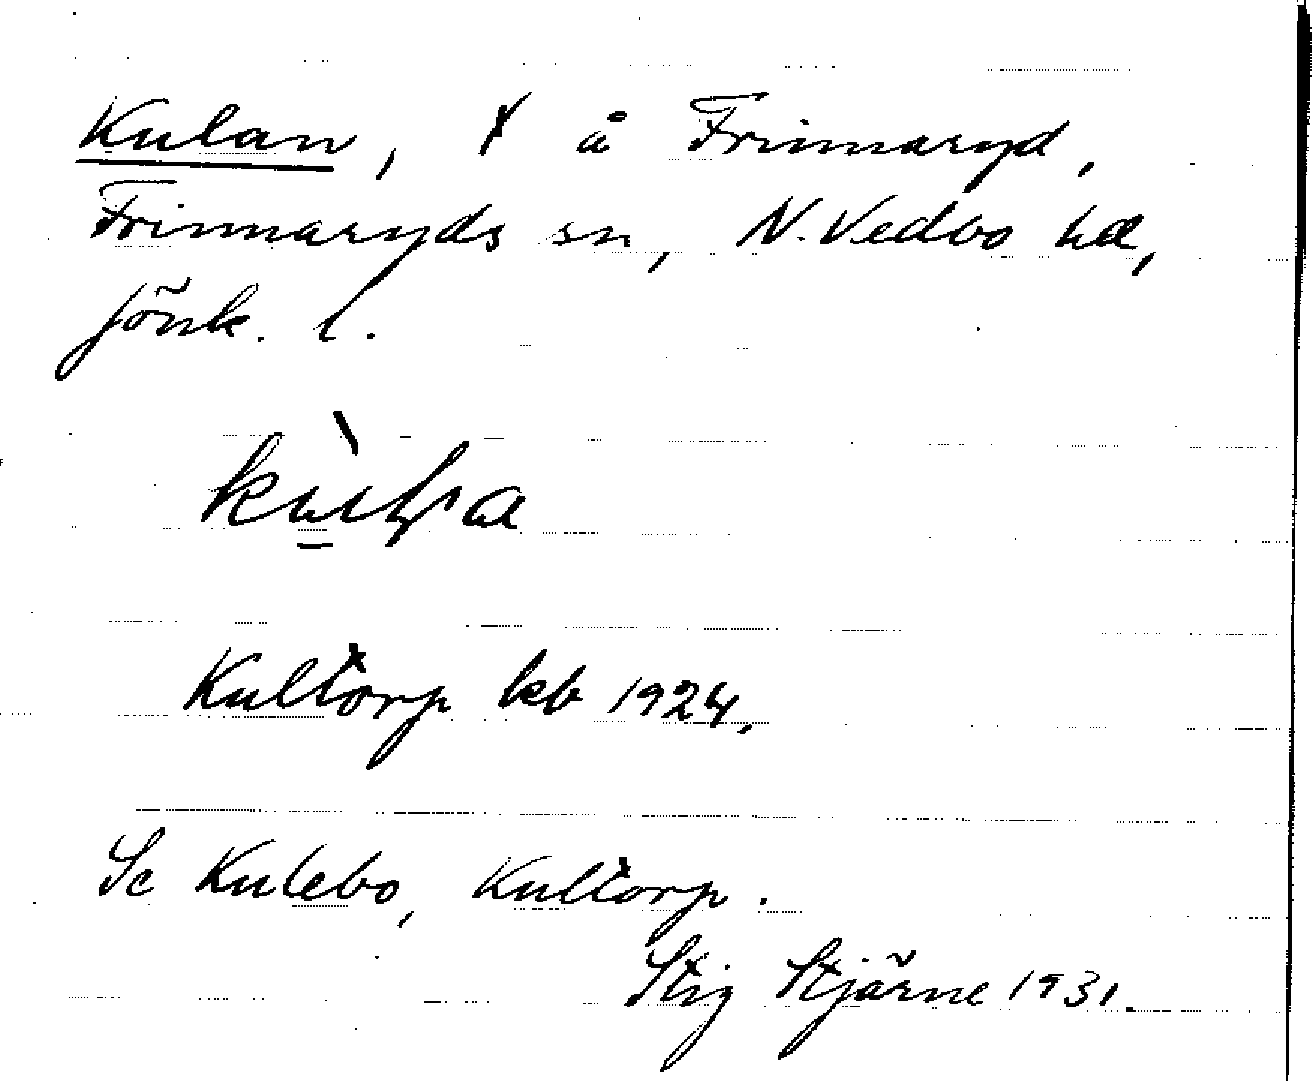 Kulan, ɤ å Frinnaryd,
Frinnaryds sn, N. Vedbo hd,
Jönk. l.
Kultorp kb 1924.
Se Kulebo, Kultorp.
Stig Stjärne 1931.